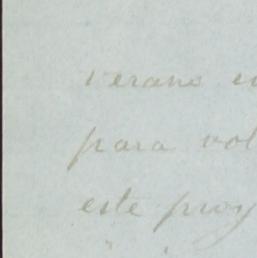 verano
para vol
este proy